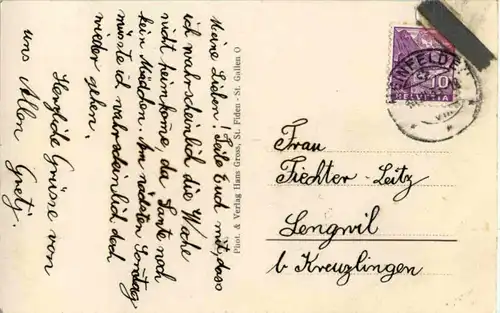 Meine Lieben! Teile Euch mit, dass
ich wahrscheinlich die Woche
nicht heimkome, da Tante noch
kein Mädchen. Am nächsten Sonntag
müsste ich wahrscheinlich doch
wieder gehen.
Herzliche Grüsse von
uns Allen Gretj.
Phot. & Verlag Hans Gross, St. Fiden - St. Gallen O
HELVETIA
10
Frau
Fiechter-Leitz
Lengwil
b Kreuzlingen